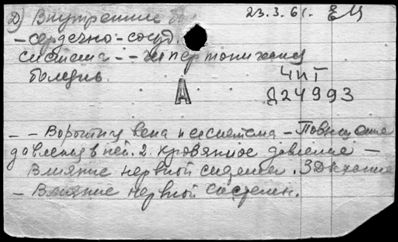 2) Внутренние 23.3.61. ЕЦ
- сердечно-сосуд.
система - - гипертоническая
болезнь.
ЧПГ
А
Д24993
- - Воротная вена и ее система - Повышение
давления в ней. 2. кровяное давление -
Влияние нервной системы. 3
- Влияние нервной системы.